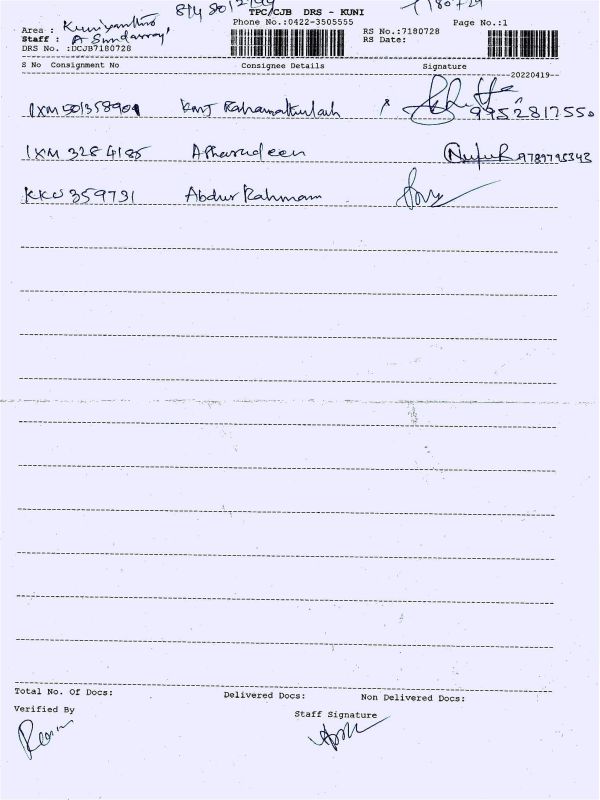 TPC/CJB DRS - KUNI
Phone No.:0422-3505555
Page No.:1
Area :
RS No.:7180728
Staff : A Sundarraj
RS Date:
DRS No. :DCJB7180728
S No Consignment No Consignee Details Signature
20220419
IXM 501358909 KMJ Rahamathulah 9952817550
IXM 3284185 Asharudeen 9789795343
KKU 359731 Abdur Rahmam
Total No. Of Docs: Delivered Docs: Non Delivered Docs:
Verified By
Staff Signature